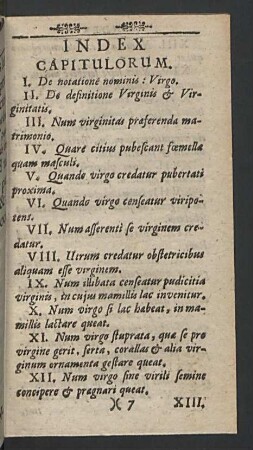 INDEX
CAPITULORUM.
I. De notatione nominis: Virgo.
II. De definitione Virginis & Vir-
ginitatis.
III. Num virginitas præferenda ma-
trimonio.
IV. Quare citius pubescant fœmellæ
quam masculi.
V. Quando virgo credatur pubertati
proxima.
VI. Quando virgo censeatur viripo-
tens.
VII. Num asserenti se virginem cre-
datur.
VIII. Utrum credatur obstetricibus
aliquam esse virginem.
IX. Num illibata censeatur pudicitia
virginis, in cuju mamillis lac invenitur.
X. Num virgo si lac habeat, in ma-
millis lactare queat.
XI. Num virgo stuprata, quæ se pro
virgine gerit, serta, corallas & alia vir-
ginum ornamenta gestare queat.
XII. Num virgo sine virili semine
concipere & prægnari queat.
)( 7 XIII.